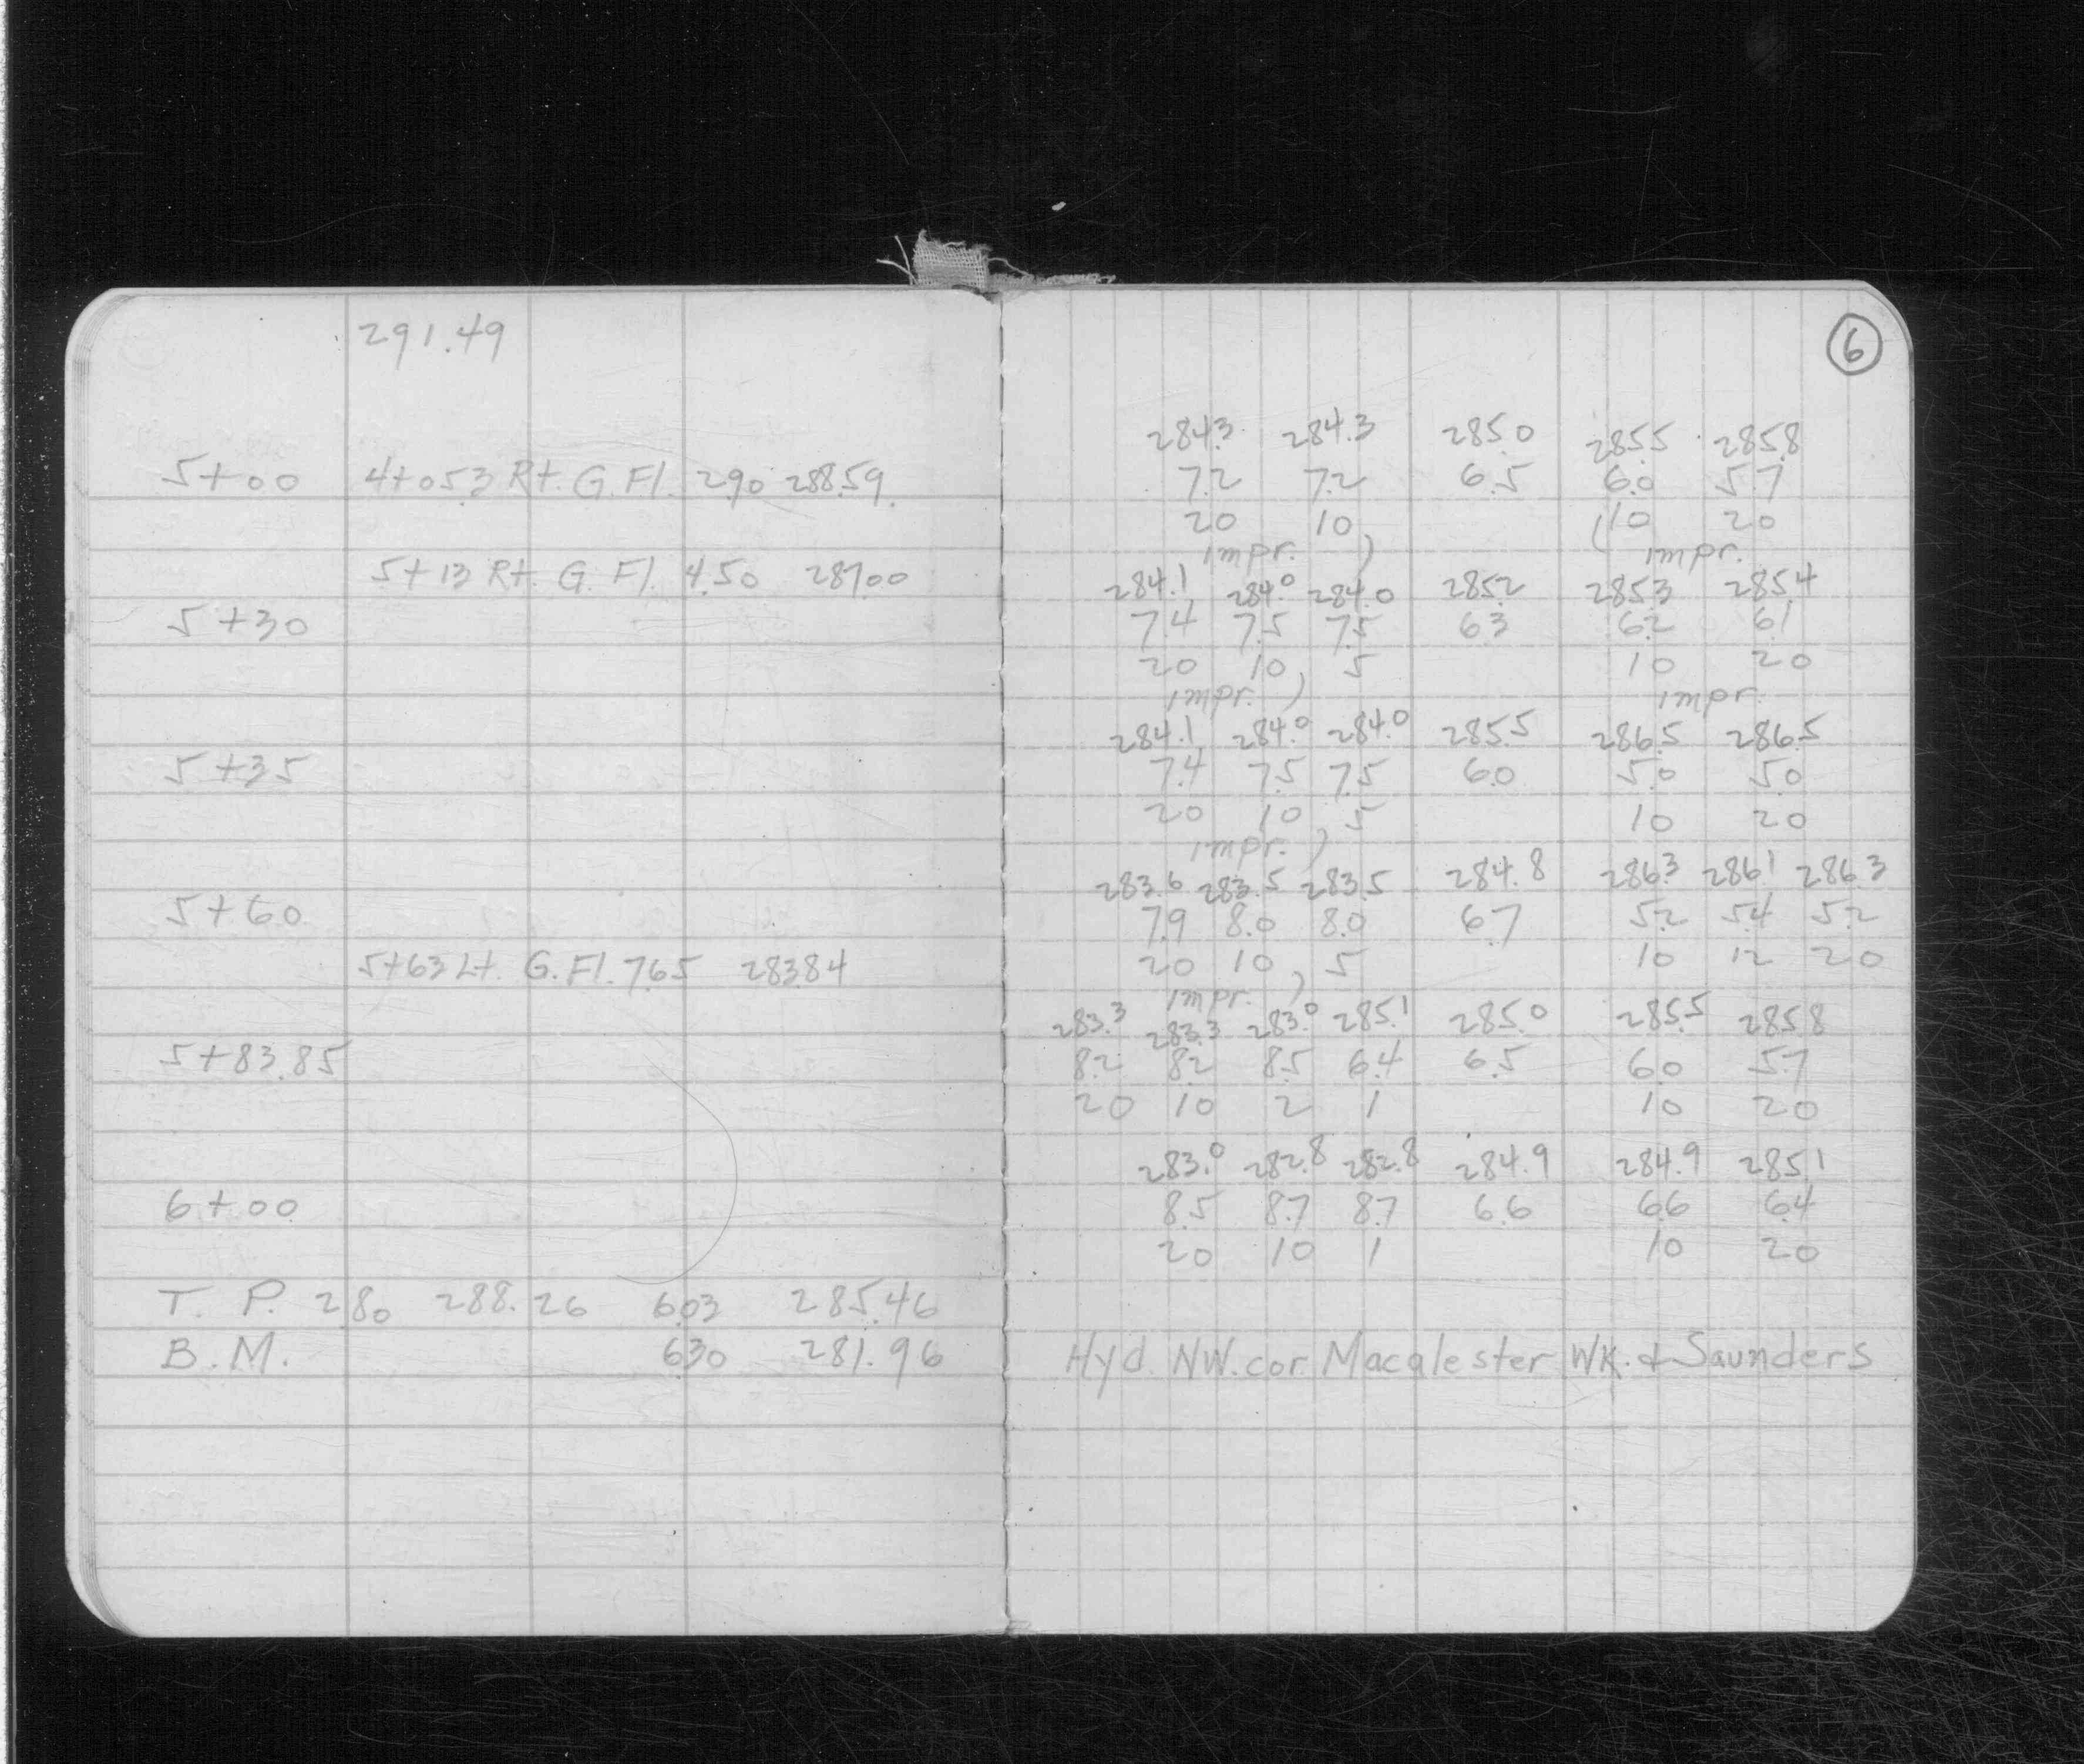 291.49
5+00 4+053 Rt. G. Fl. 290 288.59
5+13 Rt. G. Fl. 4.50 287.00
5+30
5+35
5+60
5+63 Lt. G. Fl. 7.65 283.84
5+83.85
6+00
T. P. 2.80 288.26 6.03 285.46
B. M. 6.30 281.96
6
284.3 284.3 285.0 285.5 285.8
7.2 7.2 6.5 6.0 5.7
20 10 (10 20
impr. ) impr.
284.1 284.0 284.0 285.2 285.3 285.4
7.4 7.5 7.5 6.3 6.2 6.1
20 10, 5 10 20
impr. ) impr.
284.1 284.0 284.0 285.5 286.5 286.5
7.4 7.5 7.5 6.0 5.0 5.0
20 10, 5 10 20
impr. )
283.6 283.5 283.5 284.8 286.3 286.1 286.3
7.9 8.0 8.0 6.7 5.2 5.4 5.2
20 10, 5 10 12 20
impr. )
283.3 283.3 283.0 285.1 285.0 285.5 285.8
8.2 8.2 8.5 6.4 6.5 6.0 5.7
20 10 2 1 10 20
283.0 282.8 282.8 284.9 284.9 285.1
8.5 8.7 8.7 6.6 6.6 6.4
20 10 1 10 20
Hyd. NW. cor. Macalester WK. & Saunders